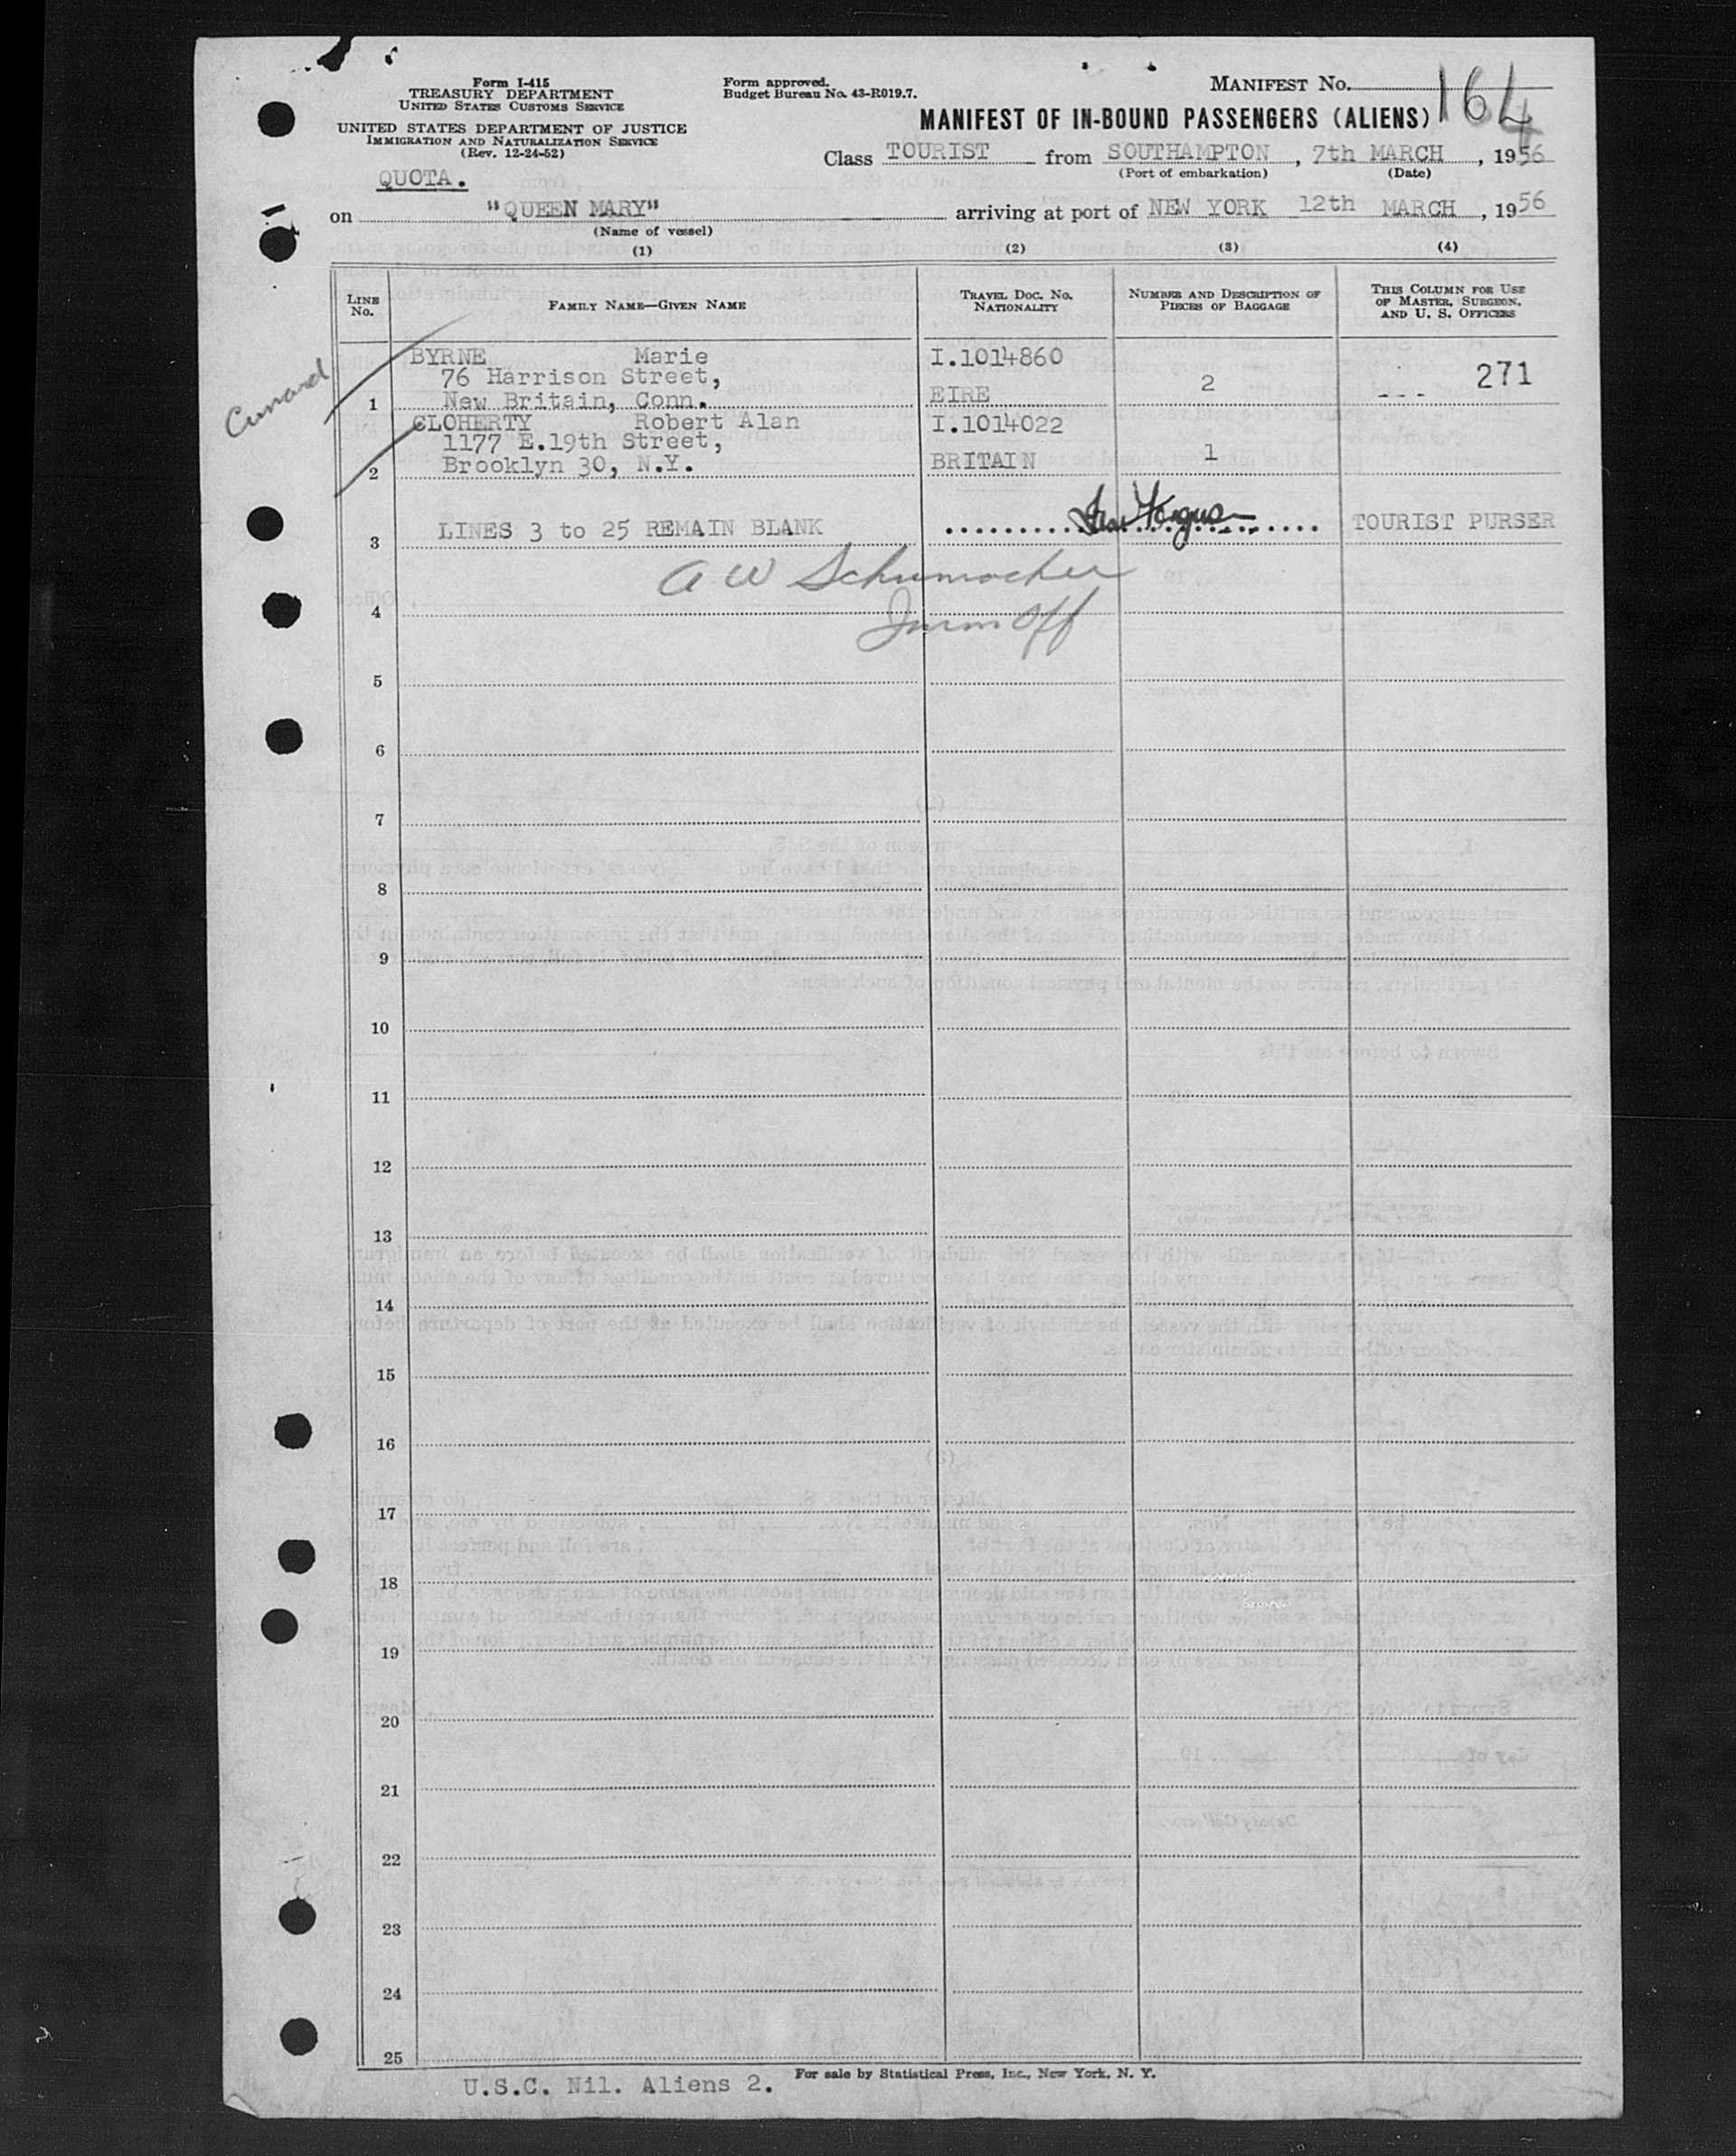 Form I-415
TREASURY DEPARTMENT
UNITED STATES CUSTOMS SERVICE
UNITED STATES DEPARTMENT OF JUSTICE
IMMIGRATION AND NATURALIZATION SERVICE
(Rev. 12-24-52)
Form approved.
Budget Bureau No. 43-R019.7.
MANIFEST No. 164
MANIFEST OF IN-BOUND PASSENGERS (ALIENS)
Class TOURIST from SOUTHAMPTON, 7th MARCH, 1956
(Port of embarkation) (Date)
QUOTA.
on "QUEEN MARY" arriving at port of NEW YORK 12th MARCH, 1956
(Name of vessel)
(1) (2) (3) (4)
LINE No. FAMILY NAME—GIVEN NAME TRAVEL DOC. No. NATIONALITY NUMBER AND DESCRIPTION OF PIECES OF BAGGAGE THIS COLUMN FOR USE OF MASTER, SURGEON, AND U. S. OFFICERS
Cunard
BYRNE Marie I.1014860
76 Harrison Street, 2 --- 271
1 New Britain, Conn. EIRE
CLOHERTY Robert Alan I.1014022
1177 E.19th Street, 1
2 Brooklyn 30, N.Y. BRITAIN
3 LINES 3 to 25 REMAIN BLANK TOURIST PURSER
A W Schumacher
4 Imm Off
5
6
7
8
9
10
11
12
13
14
15
16
17
18
19
20
21
22
23
24
25
For sale by Statistical Press, Inc., New York, N. Y.
U.S.C. Nil. Aliens 2.